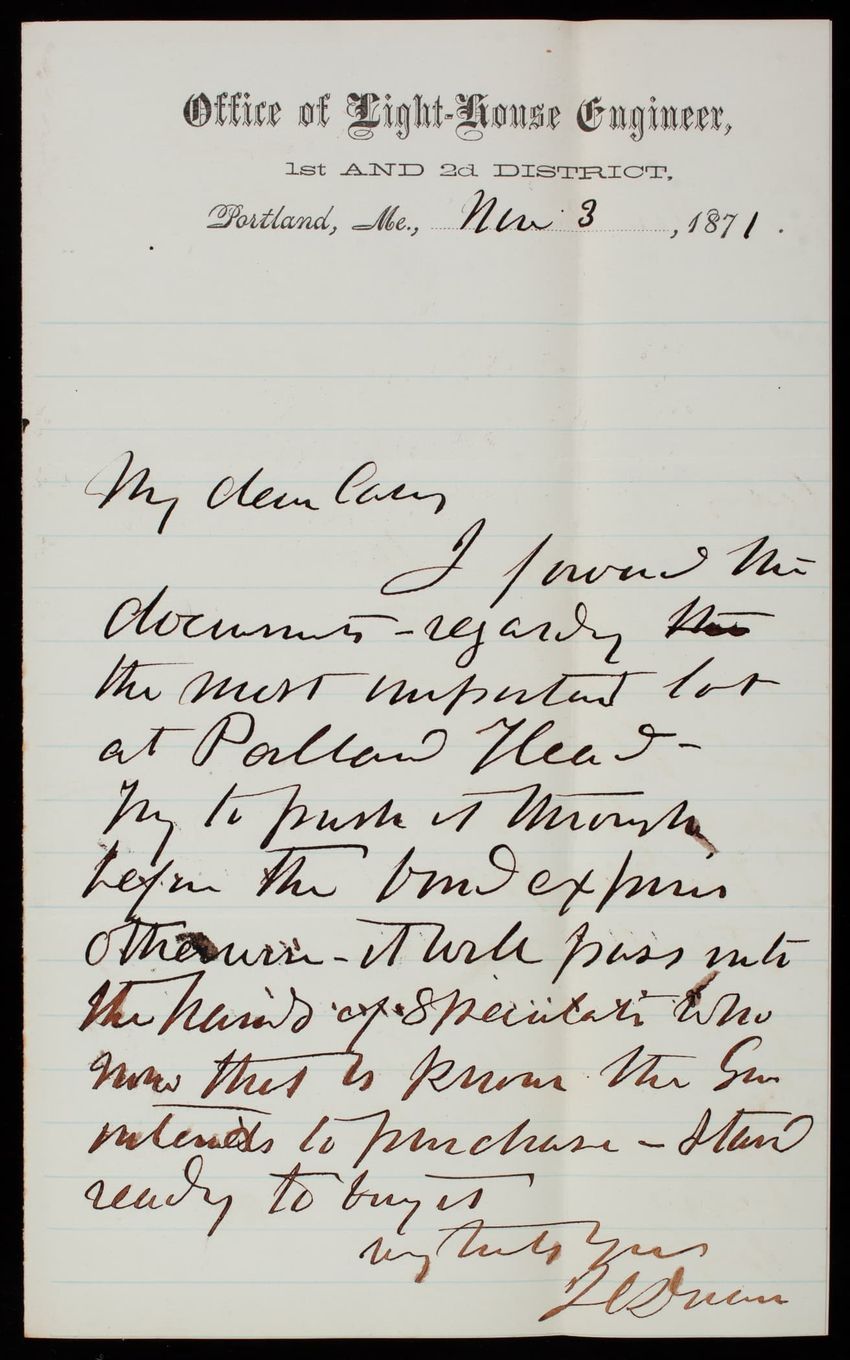 Office of Light-House Engineer,
1st AND 2d DISTRICT,
Portland, Me., Nov 3, 1871.
My dear Casey
I forward the
documents - regarding the
the most important lot
at Portland Head -
Try to push it through
before the bond expires
otherwise - it will pass into
the hands of speculators who
now that is known the Gov
intends to purchase - stand
ready to buy it
very truly yours